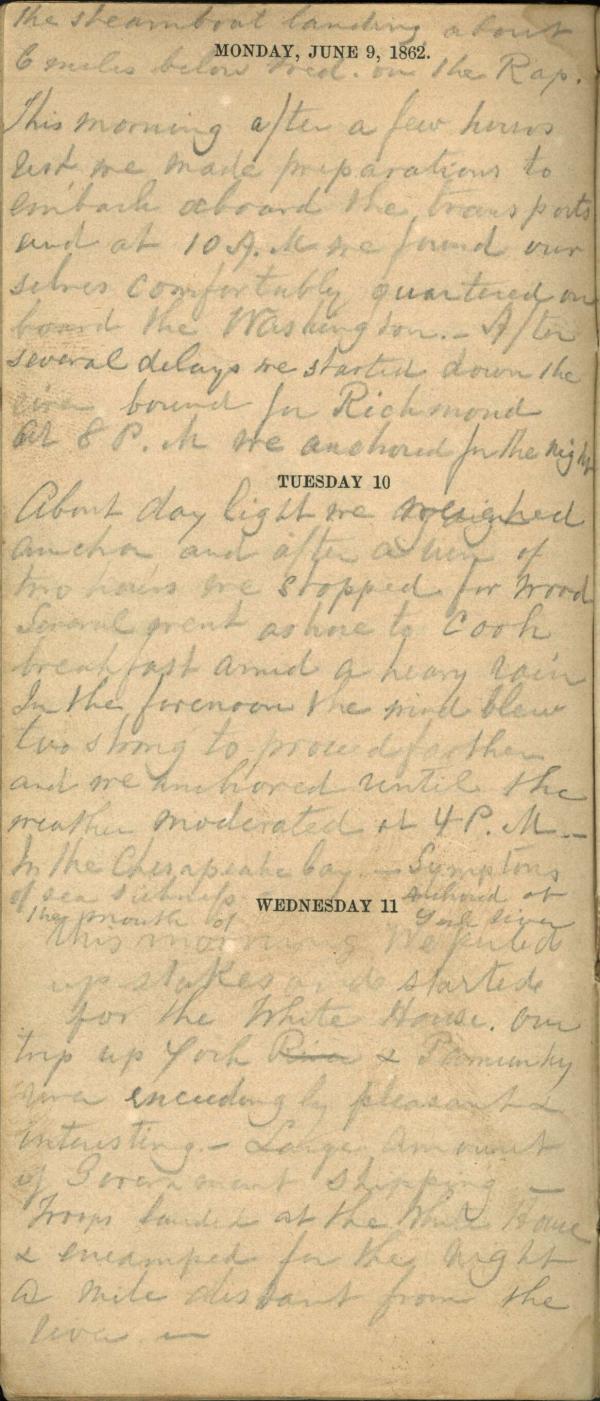 the steamboat landing about
MONDAY, JUNE 9, 1862.
6 miles below Fred. on the Rap.
This morning after a few hours
rest we made preparations to
embark aboard the transports
and at 10 A. M we found our
selves comfortably quartered on
board the Washington. - After
several delays we started down the
river bound for Richmond
At 8 P. M we anchored for the night
TUESDAY 10
About day light we weighed
anchor and after a run of
two hours we stopped for wood
Several went ashore to Cook
breakfast amid a heavy rain
In the forenoon the wind blew
two strong to proceed farther
and we anchored until the
weather moderated at 4 P. M. -
In the Chesapeake bay. - Symptons
of sea sickness anchored at
WEDNESDAY 11
the mouth of York river
This morning We pulled
up stakes and started
for the White House. Our
trip up York River & Pamunky
river exceedingly pleasant &
interesting. - Large amount
of Government shipping -
Troops landed at the White House
& encamped for the night
a mile distant from the
river -